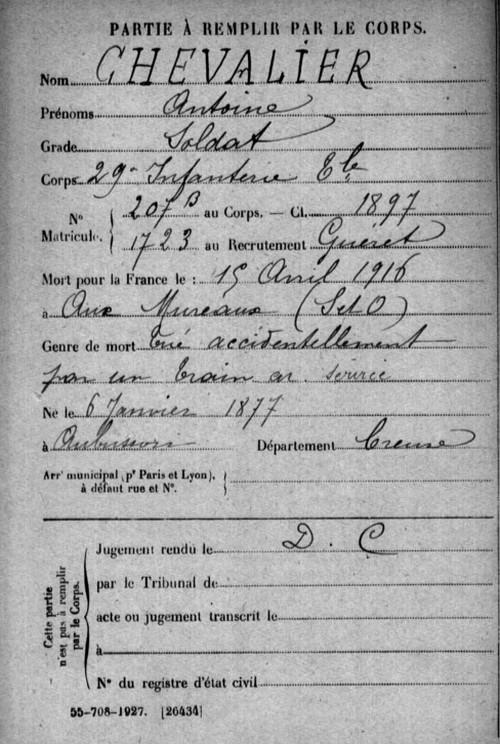 PARTIE À REMPLIR PAR LE CORPS.
Nom CHEVALIER
Prénoms Antoine
Grade Soldat
Corps 29e Infanterie Ele
No Matricule. 207 B au Corps. — Cl. 1897
1723 au Recrutement Guéret
Mort pour la France le : 15 Avril 1916
à Aux Mureaux (S et O)
Genre de mort tué accidentellement
par un train en service
Né le 6 Janvier 1877
à Aubusson Département Creuse
Arrt municipal (pr Paris et Lyon), à défaut rue et No.
Cette partie n'est pas à remplir par le Corps.
Jugement rendu le D. C
par le Tribunal de
acte ou jugement transcrit le
à
No du registre d'état civil
55-708-1927. [26434]